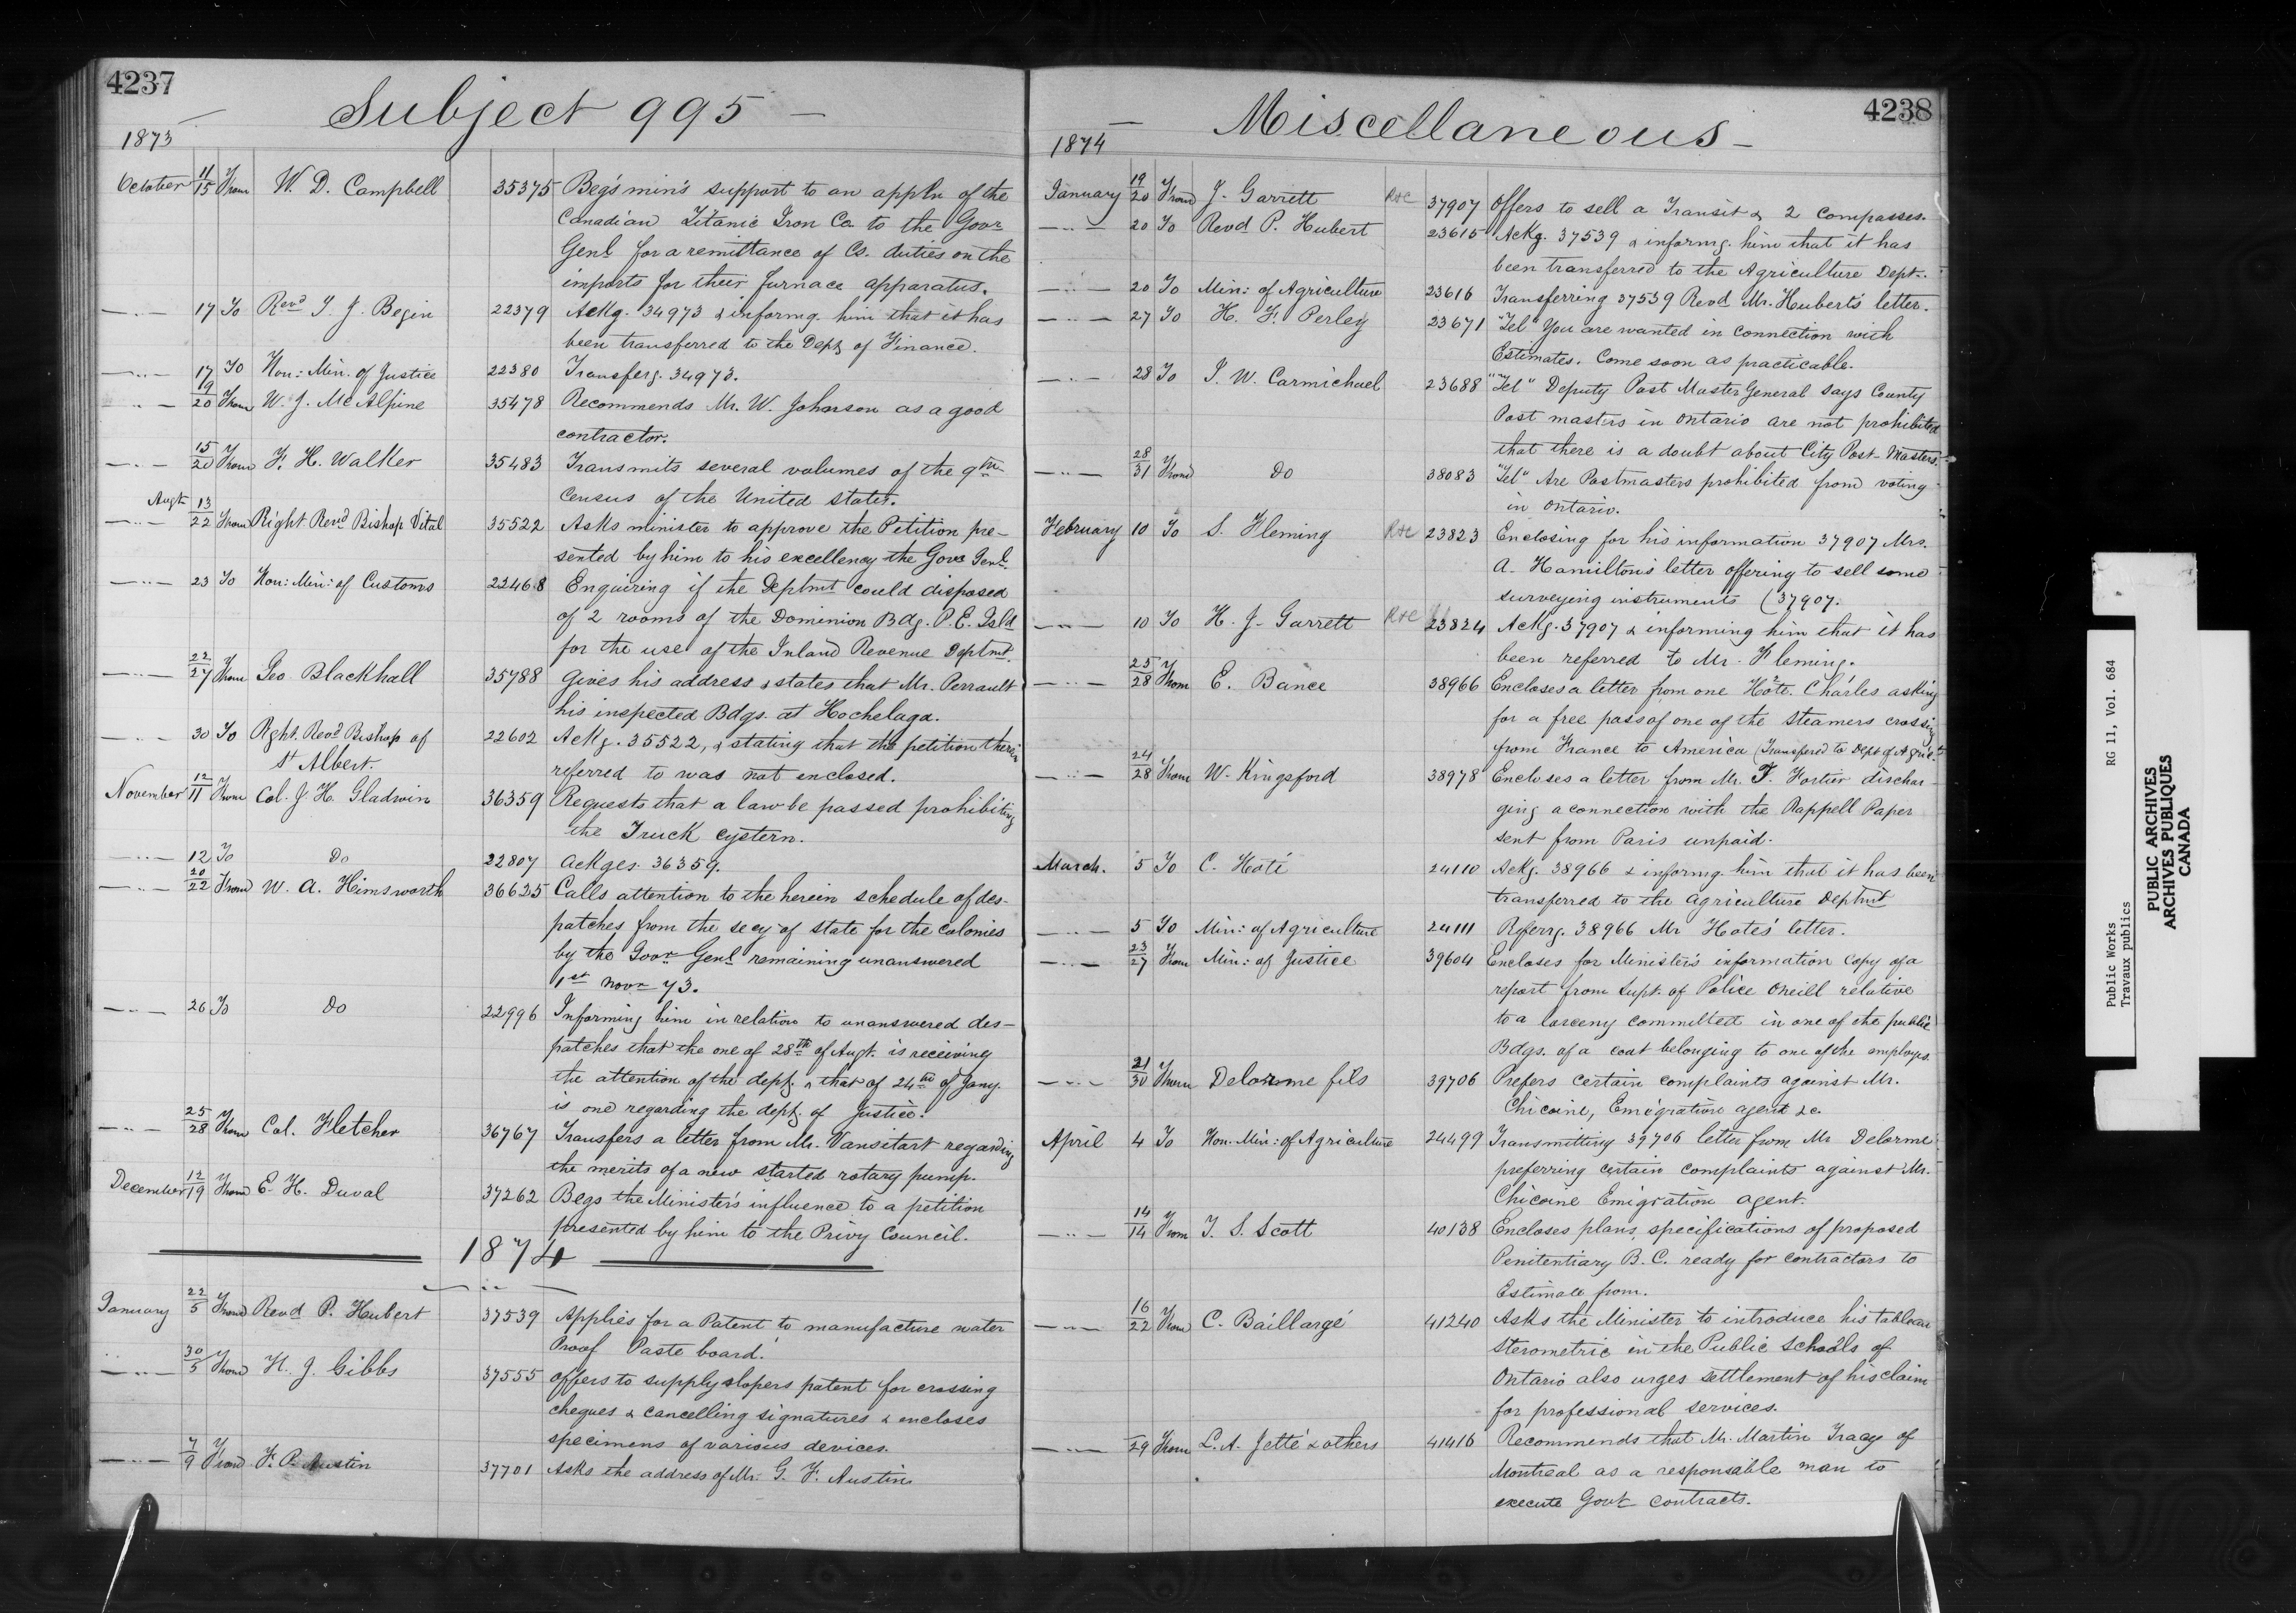 4237
Subject 995 —
1873
October 11/15 From W. D. Campbell 35375 Begs min's support to an appln of the
Canadian Titanic Iron Co. to the Govr
Genl for a remittance of Cs. duties on the
imports for their furnace apparatus.
—"— 17 To Revd T. J. Begin 22379 Ackg. 34973 & informg. him that it has
been transferred to the Dept. of Finance.
—"— 17 To Hon: Min. of Justice 22380 Transferg. 34973.
—"— 19/20 From W. J. McAlpine 35478 Recommends Mr. W. Johnson as a good
contractor.
—"— 15/20 From F. H. Walker 35483 Transmits several volumes of the 9th
Census of the United States.
Augt
—"— 13/22 From Right Revd Bishop Vital 35522 Asks minister to approve the Petition pre-
sented by him to his excellency the Govr Genl.
—"— 23 To Hon: Min: of Customs 22468 Enquiring if the Deptmt could disposed
of 2 rooms of the Dominion Bdg. P. E. Isld
for the use of the Inland Revenue Deptmt.
—"— 22/27 From Geo Blackhall 35788 Gives his address & states that Mr. Perrault
his inspected Bdgs. at Hochelaga.
—"— 30 To Rght. Revd Bishop of 22602 Ackg. 35522, & stating that the petition therein
St Albert. referred to was not enclosed.
November 12/11 From Col. J. H. Gladwin 36359 Requests that a law be passed prohibiting
the Truck cystern.
—"— 12 To Do 22807 Ackges. 36359.
—"— 20/22 From W. A. Himsworth 36625 Calls attention to the herein schedule of des-
patches from the secy of state for the colonies
by the Govr Genl remaining unanswered
1st Novr 73.
—"— 26 To Do 22996 Informing him in relation to unanswered des-
patches that the one of 28th of Augt. is receiving
the attention of the dept. & that of 24th of Jany.
is one regarding the dept. of Justice.
—"— 25/28 From Col. Fletcher 36767 Transfers a letter from Mr. Vansitart regarding
the merits of a new started rotary pump.
December 12/19 From E. H. Duval 37262 Begs the Minister's influence to a petition
presented by him to the Privy Council.
1874
January 22/5 From Revd P. Hubert 37539 Applies for a Patent to manufacture water
Proof Paste board.
—"— 30/5 From H. J. Gibbs 37555 Offers to supply slopers patent for crossing
cheques & cancelling signatures & encloses
specimens of various devices.
—"— 7/9 From F. P. Austin 37701 Asks the address of Mr. G. F. Austin
4238
— Miscellaneous —
1874
January 19/20 From J. Garrett R&C 37907 Offers to sell a Transit & 2 compasses.
—"— 20 To Revd P. Hubert 23615 Ackg. 37539 & informg. him that it has
been transferred to the Agriculture Dept.
—"— 20 To Min: of Agriculture 23616 Transferring 37539 Revd Mr. Hubert's letter.
—"— 27 To H. F. Perley 23671 "Tel" You are wanted in connection with
Estimates. Come soon as practicable.
—"— 28 To J. W. Carmichael 23688 "Tel" Deputy Post Master General says County
Post masters in Ontario are not prohibited
that there is a doubt about City Post-Masters.
—"— 28/31 From Do 38083 "Tel" Are Postmasters prohibited from voting
in Ontario.
February 10 To S. Fleming R&C 23823 Enclosing for his information 37907 Mrs.
A. Hamilton's letter offering to sell some
surveying instruments (37907.
—"— 10 To H. J. Garrett R&C 23824 Ackg. 37907 & informing him that it has
been referred to Mr. Fleming.
—"— 25/28 From E. Bance 38966 Encloses a letter from one Hote. Charles asking
for a free pass of one of the Steamers crossing
from France to America (Transfered to Dept of Agric.
—"— 24/28 From W. Kingsford 38978 Encloses a letter from Mr. F. Fortier dischar-
ging a connection with the Rappell Paper
sent from Paris unpaid.
March. 5 To C. Hoté 24110 Ackg. 38966 & informg him that it has been
transferred to the Agriculture Deptmt
—"— 5 To Min: of Agriculture 24111 Referrg. 38966 Mr Hotes' letter.
—"— 23/27 From Min: of Justice 39604 Encloses for Minister's information copy of a
report from Supt. of Police Oneill relative
to a larceny committed in one of the public
Bdgs. of a coat belonging to one of the employes.
—"— 21/30 From Delorme fils 39706 Prefers certain complaints against Mr.
Chicoine, Emigration agent &c.
April 4 To Hon. Min: of Agriculture 24499 Transmitting 39706 letter from Mr Delorme
preferring certain complaints against Mr.
Chicoine Emigration agent.
—"— 14/14 From T. S. Scott 40138 Encloses plans, specifications of proposed
Penitentiary B. C. ready for contractors to
Estimate from.
—"— 16/22 From C. Baillargé 41240 Asks the Minister to introduce his tableau
Sterometric in the Public Schools of
Ontario also urges settlement of his claim
for professional services.
—"— 29 From L. A. Jetté & others 41416 Recommends that Mr. Martin Tracy of
Montreal as a responsable man to
execute Govt contracts.
Public Works RG 11, Vol. 684
Travaux publics
PUBLIC ARCHIVES
ARCHIVES PUBLIQUES
CANADA